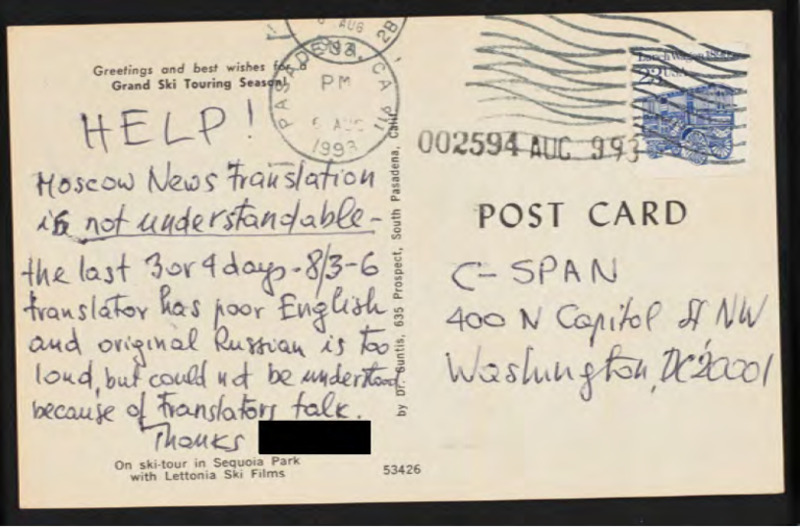 Greetings and best wishes for a
Grand Ski Touring Season!
HELP!
Moscow News Translation
is not understandable -
the last 3 or 4 days - 8/3-6
translator has poor English
and original Russian is too
loud, but could not be understood
because of translators talk.
Thanks
On ski-tour in Sequoia Park
with Lettonia Ski Films
by Dr. Buntis, 635 Prospect, South Pasadena, Calif.
53426
PASADENA, CA 911
PM
6 AUG
1993
AUG
2B
002594 AUG 993
Lunch Wagon 1890s
23 USA
POST CARD
C-SPAN
400 N Capitol St NW
Washington, DC 20001